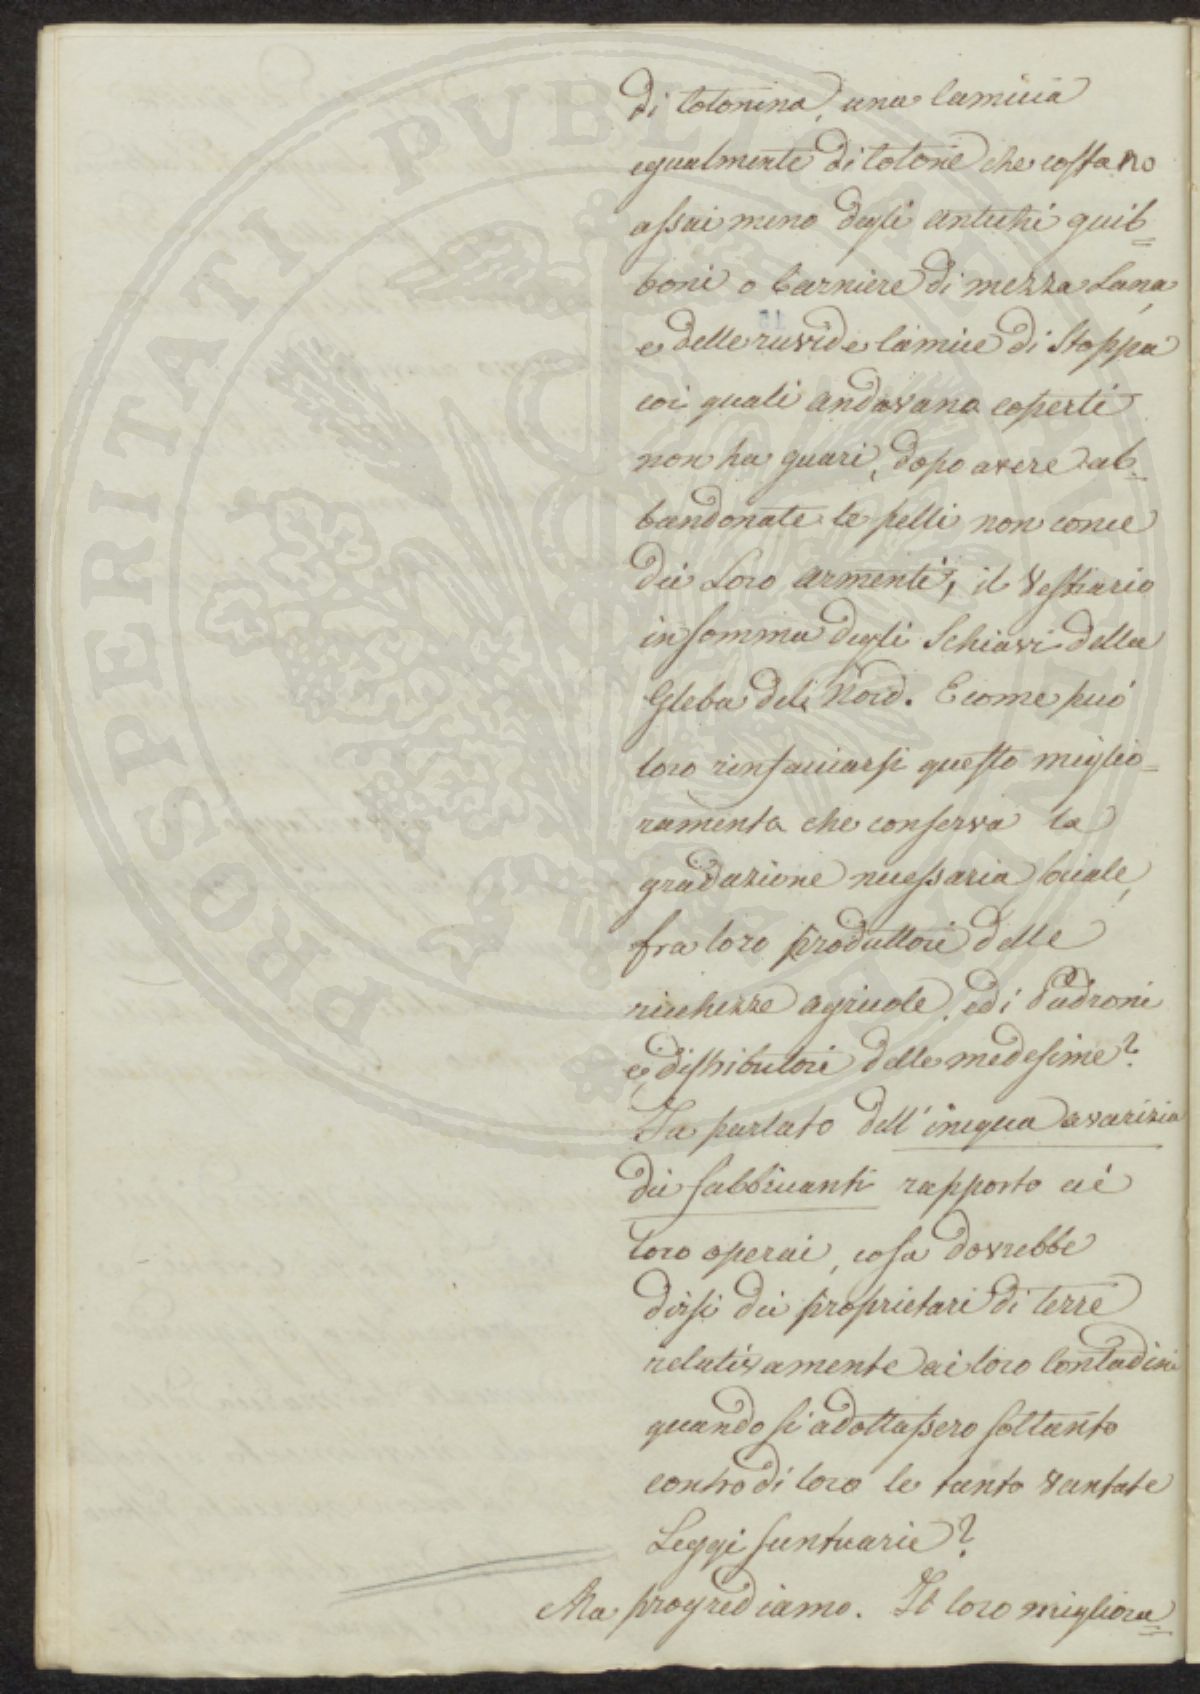 di Cotonina, una Camicia
egualmente di Cotone che costano
assai meno degli antichi guib=
boni o Carniere di mezza Lana,
e delle ruvide Camicie di Stoppa
coi quali andavano coperti
non ha guari, dopo avere ab=
bandonate le pelli non concie
dei Loro armenti, il Vestiario
in somma degli Schiavi della
Gleba del Nord. E come può
loro rinfacciarsi questo miglio=
ramento che conserva la
gradazione necessaria
fra loro produttori delle
ricchezze agricole, ed i Padroni
e distributori delle medesime?
Ha parlato dell'iniqua avarizia
dei fabbricanti rapporto ai
loro operai, cosa dovrebbe
dirsi dei proprietari di terre
relativamente ai loro Contadini
quando si adottassero soltanto
contro di loro le tanto vantate
Leggi suntuarie?
Ma progrediamo. Il loro migliora=
PROSPERITATI PUBLICAE